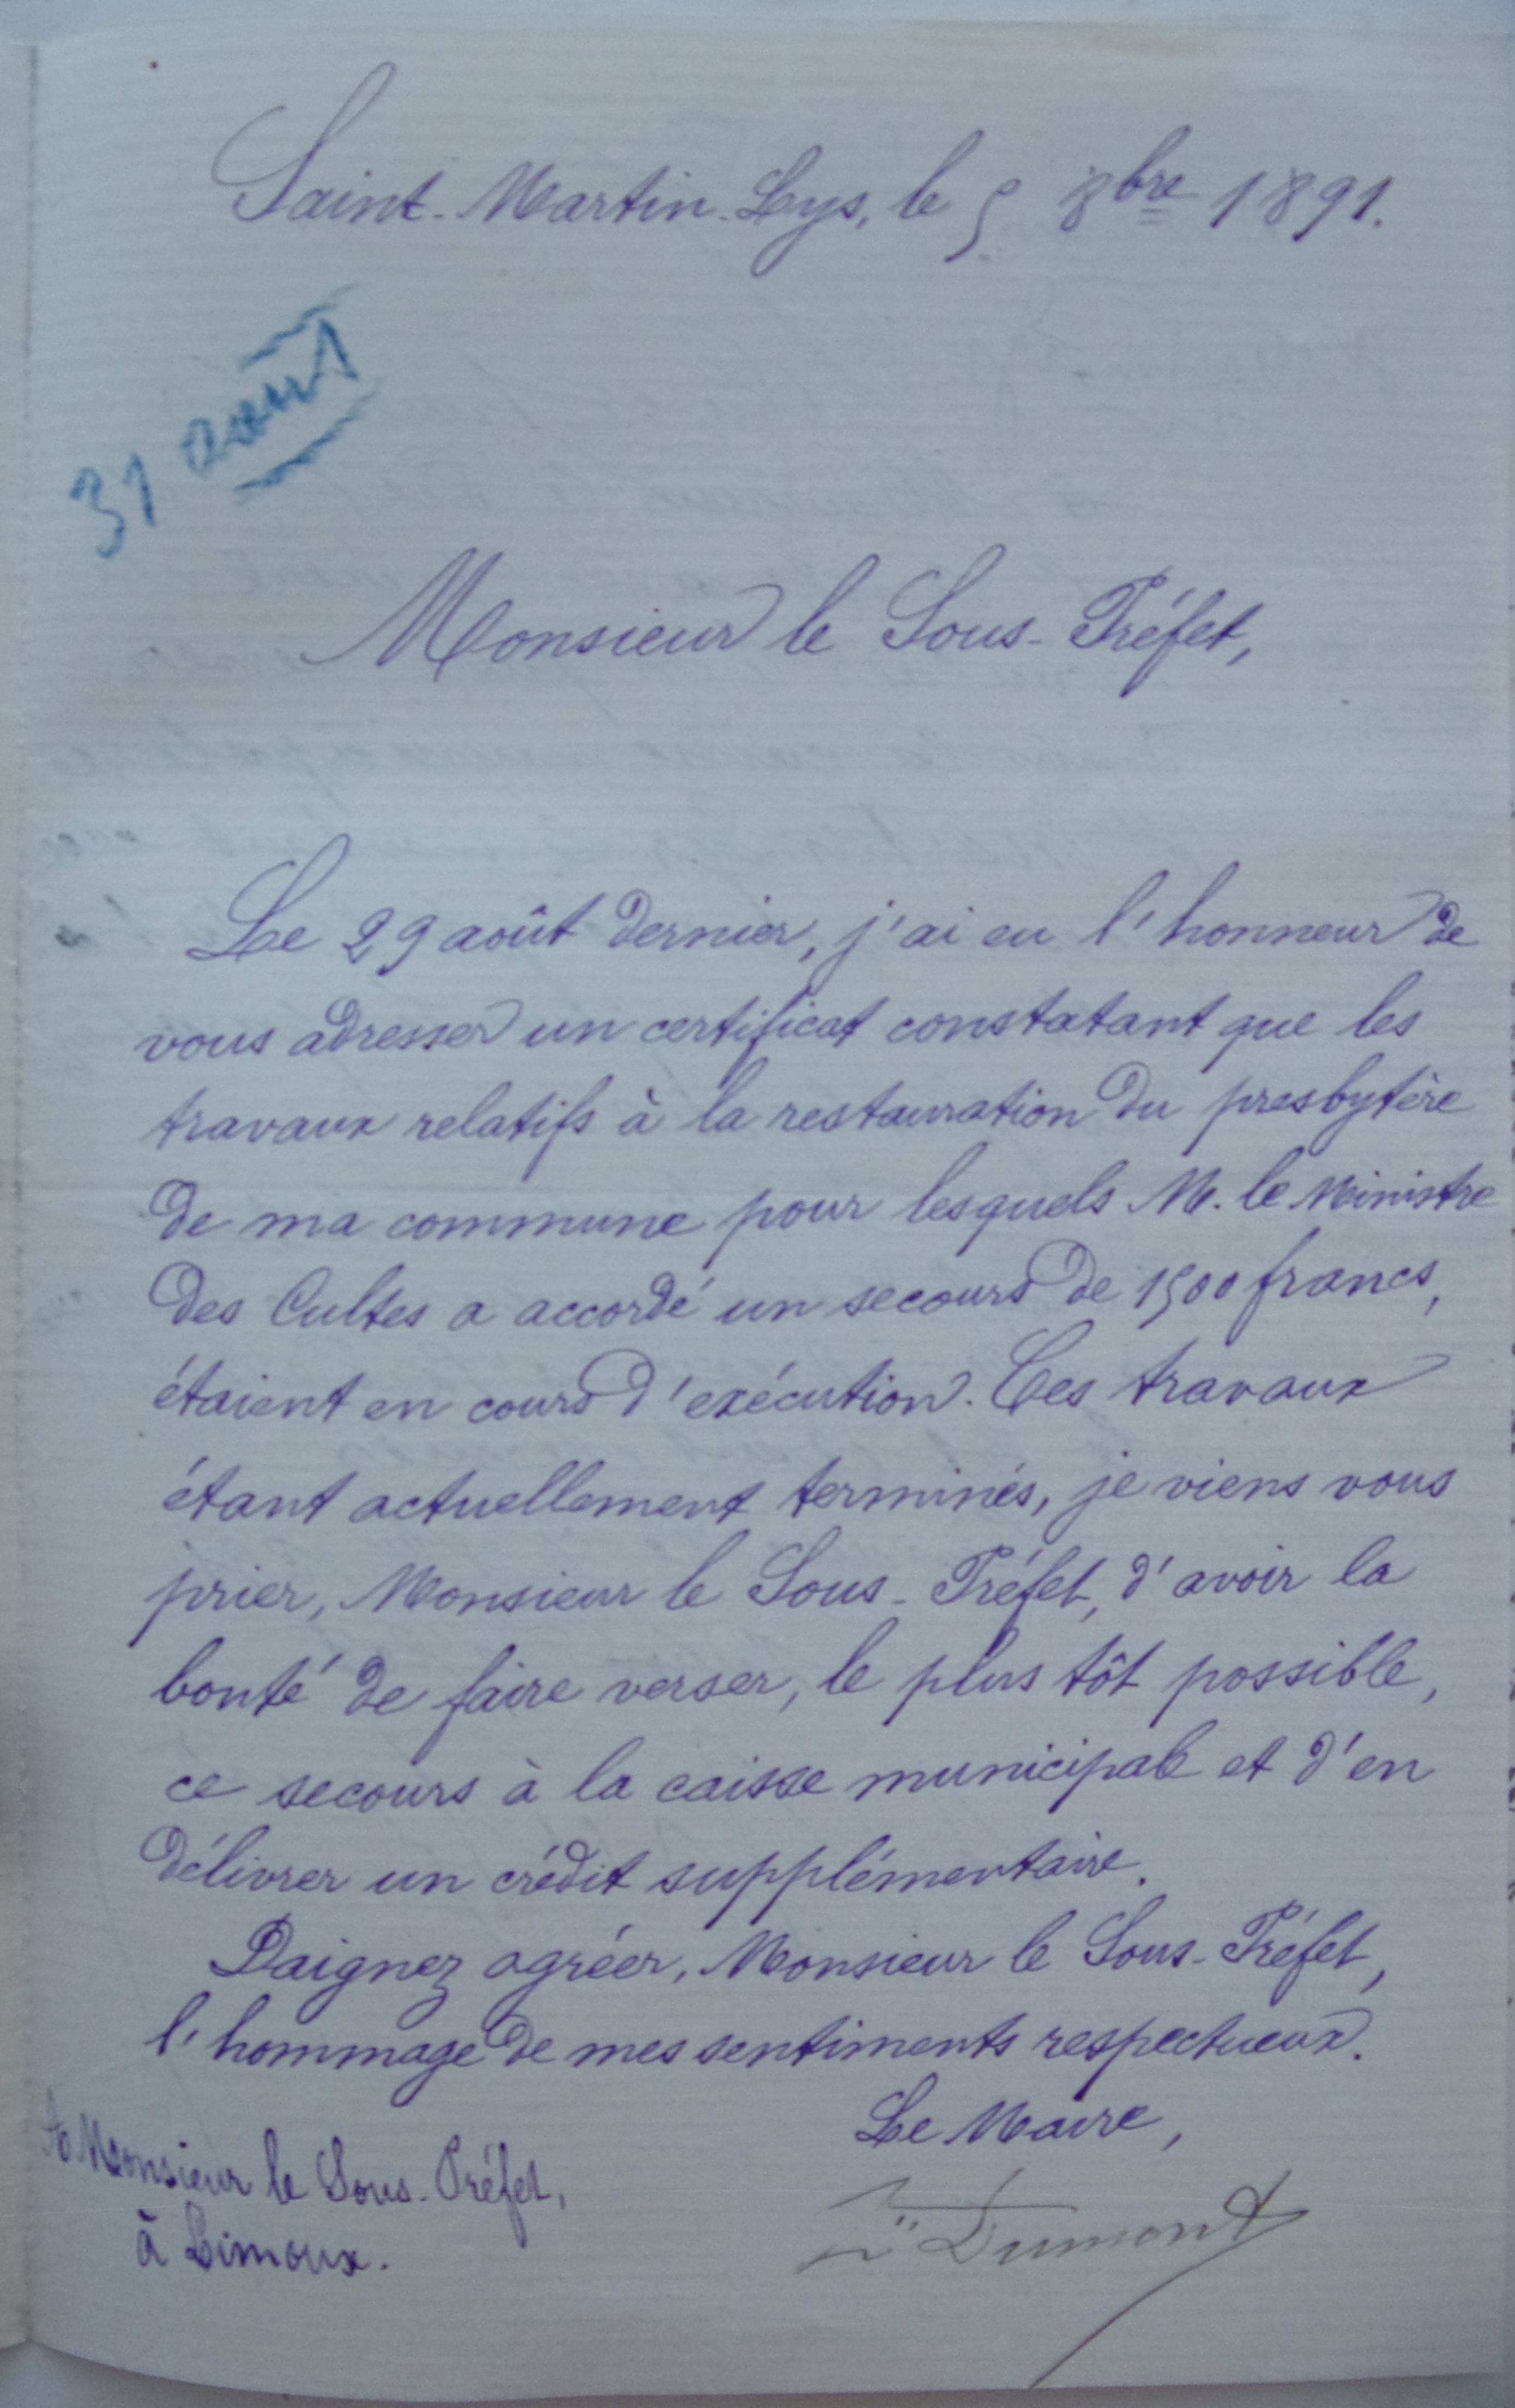 Saint-Martin-Lys, le 5 8bre 1891.
31 août
Monsieur le Sous-Préfet,
Le 29 août dernier, j'ai eu l'honneur de
vous adresser un certificat constatant que les
travaux relatifs à la restauration du presbytère
de ma commune pour lesquels M. le Ministre
des Cultes a accordé un secours de 1500 francs,
étaient en cours d'exécution. Ces travaux
étant actuellement terminés, je viens vous
prier, Monsieur le Sous-Préfet, d'avoir la
bonté de faire verser, le plus tôt possible,
ce secours à la caisse municipale et d'en
délivrer un crédit supplémentaire.
Daignez agréer, Monsieur le Sous-Préfet,
l'hommage de mes sentiments respectueux.
Le Maire,
Dumont
A Monsieur le Sous-Préfet,
à Limoux.